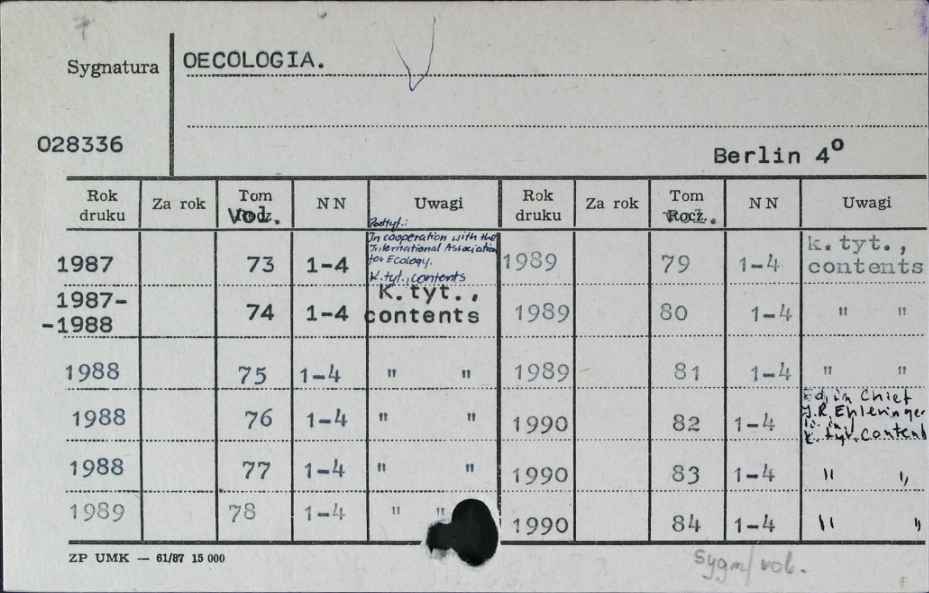 7
Sygnatura OECOLOGIA.
028336
Berlin 4º
Rok druku Za rok Tom Vol. NN Uwagi Rok druku Za rok Tom Rocz. NN Uwagi
Podtyt.:
In cooperation with the
International Association
for Ecology.
K. tyt., contents
1987 73 1-4 1989 79 1-4 k. tyt., contents
1987-
-1988 74 1-4 K. tyt., contents 1989 80 1-4 " "
1988 75 1-4 " " 1989 81 1-4 " "
1988 76 1-4 " " 1990 82 1-4 Ed. in Chief
J.R. Ehleringer
K. tyt. Content
1988 77 1-4 " " 1990 83 1-4 " "
1989 78 1-4 " " 1990 84 1-4 " "
ZP UMK — 61/87 15 000
sygn/vol.